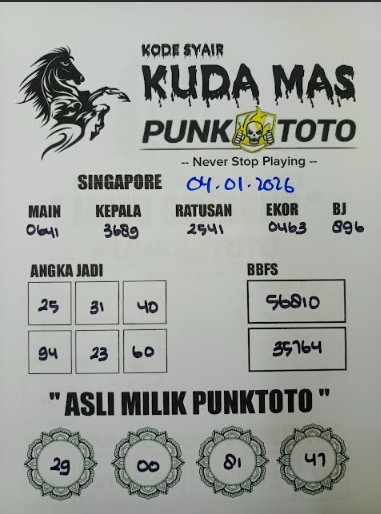 KODE SYAIR
KUDA MAS
PUNK TOTO
-- Never Stop Playing --
SINGAPORE 04.01.2026
MAIN KEPALA RATUSAN EKOR BJ
0641 3689 2541 0463 896
ANGKA JADI BBFS
25 31 40 56810
94 23 60 35764
" ASLI MILIK PUNKTOTO "
29 00 81 47